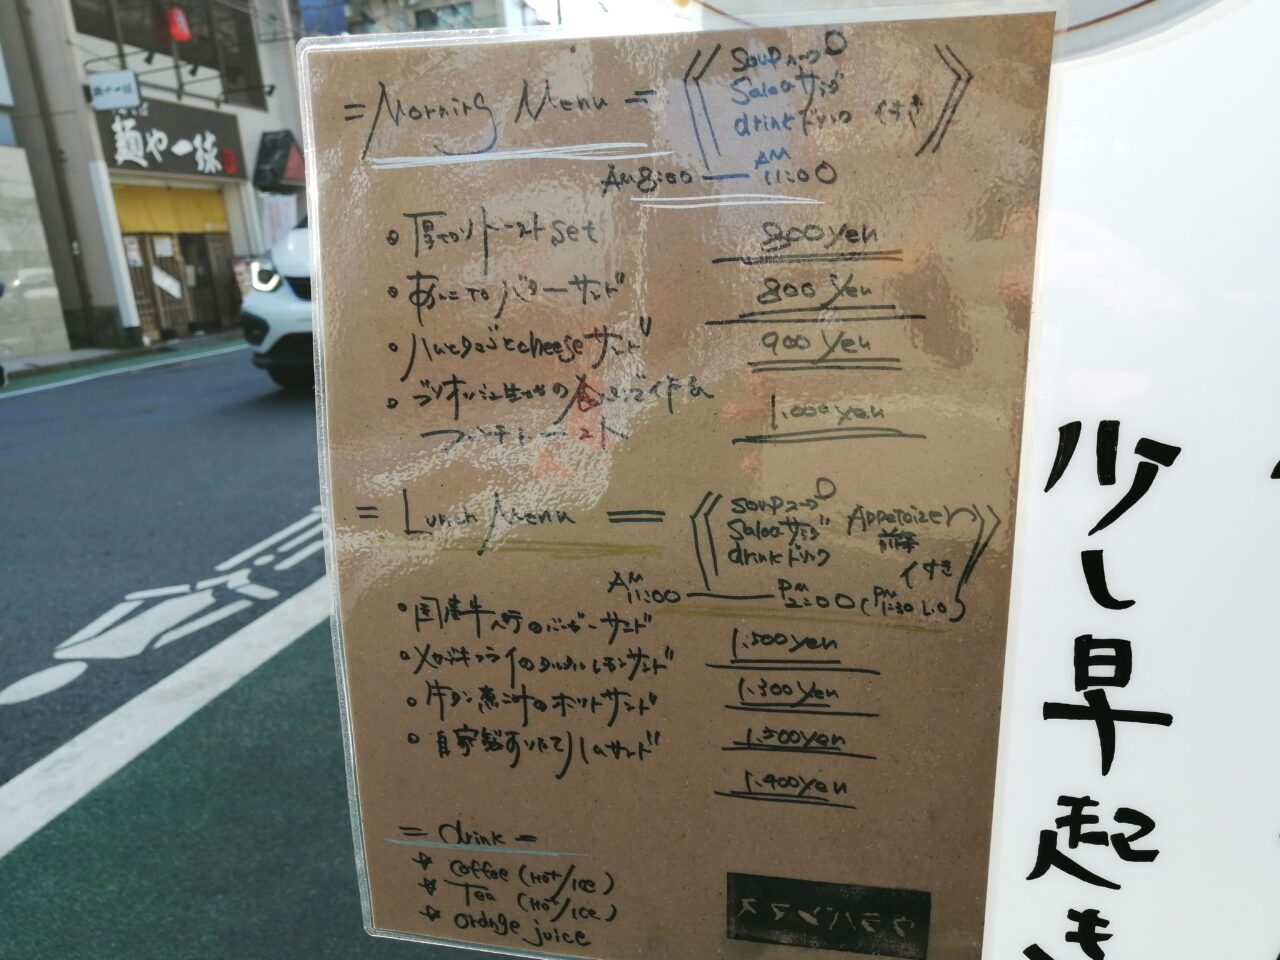 麺や一
= Morning Menu =
Soup スープ
Salad サラダ
drink ドリンク
付き
AM 8:00 — AM 11:00
厚切りトースト set
800 yen
あんことバターサンド
800 yen
ハムとタマゴとcheeseサンド
900 yen
ブリオッシュ生
フレンチトースト
1.000 yen
= Lunch Menu =
Soup スープ
Salad サラダ
drink ドリンク
Appetaizer
前菜
付き
AM 11:00 — PM 2:00 (PM 1:30 L.O)
国産牛 のバーガーサンド
1.500 yen
メカジキフライのタルタルレモンサンド
1.300 yen
牛タン煮込みのホットサンド
1.500 yen
自家製 ハムサンド
1.400 yen
= drink =
☆ coffee (HOT/ICE)
☆ Tea (HOT/ICE)
☆ orange juice
ウラバンマス
少し早起き